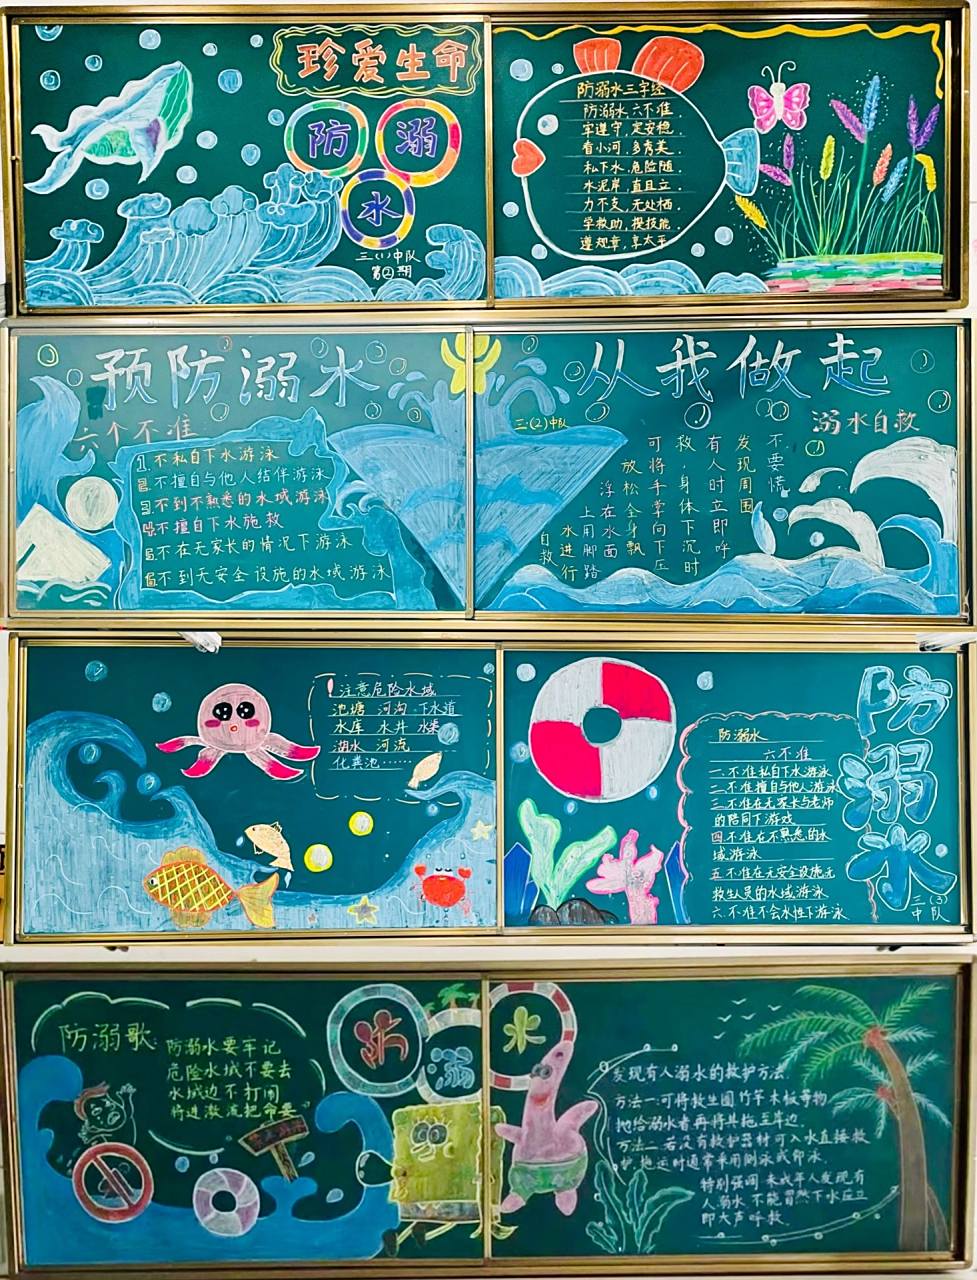 珍爱生命
防溺
水
三(1)中队
第②期
防溺水三字经
防溺水,六不准
牢遵守,定安稳.
看小河,多秀美.
私下水,危险随.
水泥岸,直且立.
力不支,无处栖.
学救助,提技能.
遵规章,享太平
预防溺水
六个不准
1.不私自下水游泳
2.不擅自与他人结伴游泳
3.不到不熟悉的水域游泳
4.不擅自下水施救
5.不在无家长的情况下游泳
6.不到无安全设施的水域游泳
从我做起
三(2)中队
溺水自救
不要慌
发现周围
有人时立即呼
救,身体下沉时
可将手掌向下压
放松全身飘
浮在水面
上用脚踏
水进行
自救
注意危险水域
池塘 河沟 下水道
水库 水井 水渠
湖水 河流
化粪池……
防溺水
三(3)
中队
防溺水
六不准
一.不准私自下水游泳
二.不准擅自与他人游泳
三.不准在无家长与老师
的陪同下游戏
四.不准在不熟悉的水
域游泳
五.不准在无安全设施无
救生人员的水域游泳
六.不准不会水性下游泳
防溺歌:
防溺水要牢记
危险水域不要去
水域边不打闹
将进激流把命要
防
溺
水
发现有人溺水的救护方法.
方法一:可将救生圈竹竿木板等物
抛给溺水者再将其拖至岸边.
方法二:若没有救护器材可入水直接救
护.拖运时通常采用侧泳或仰泳.
特别强调:未成年人发现有
人溺水,不能冒然下水应立
即大声呼救.